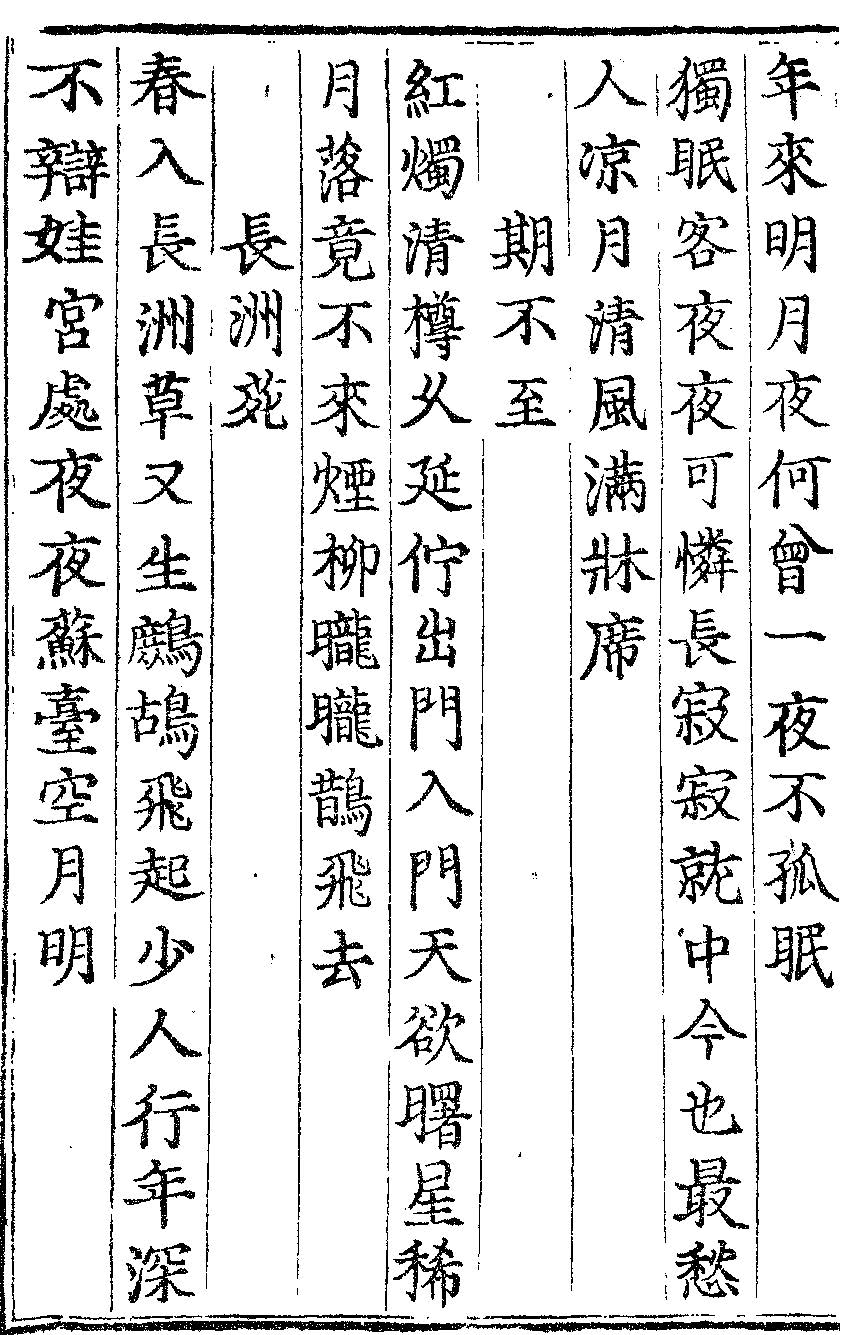 年來明月夜何曾一夜不孤眠
獨眠客夜夜可憐長寂寂就中今也最愁
人凉月清風滿牀席
期不至
紅燭清樽乆延佇出門入門天欲曙星稀
月落竟不來煙柳朧朧鵲飛去
長洲苑
春入長洲草又生鷓鴣飛起少人行年深
不辯娃宮處夜夜蘇臺空月明